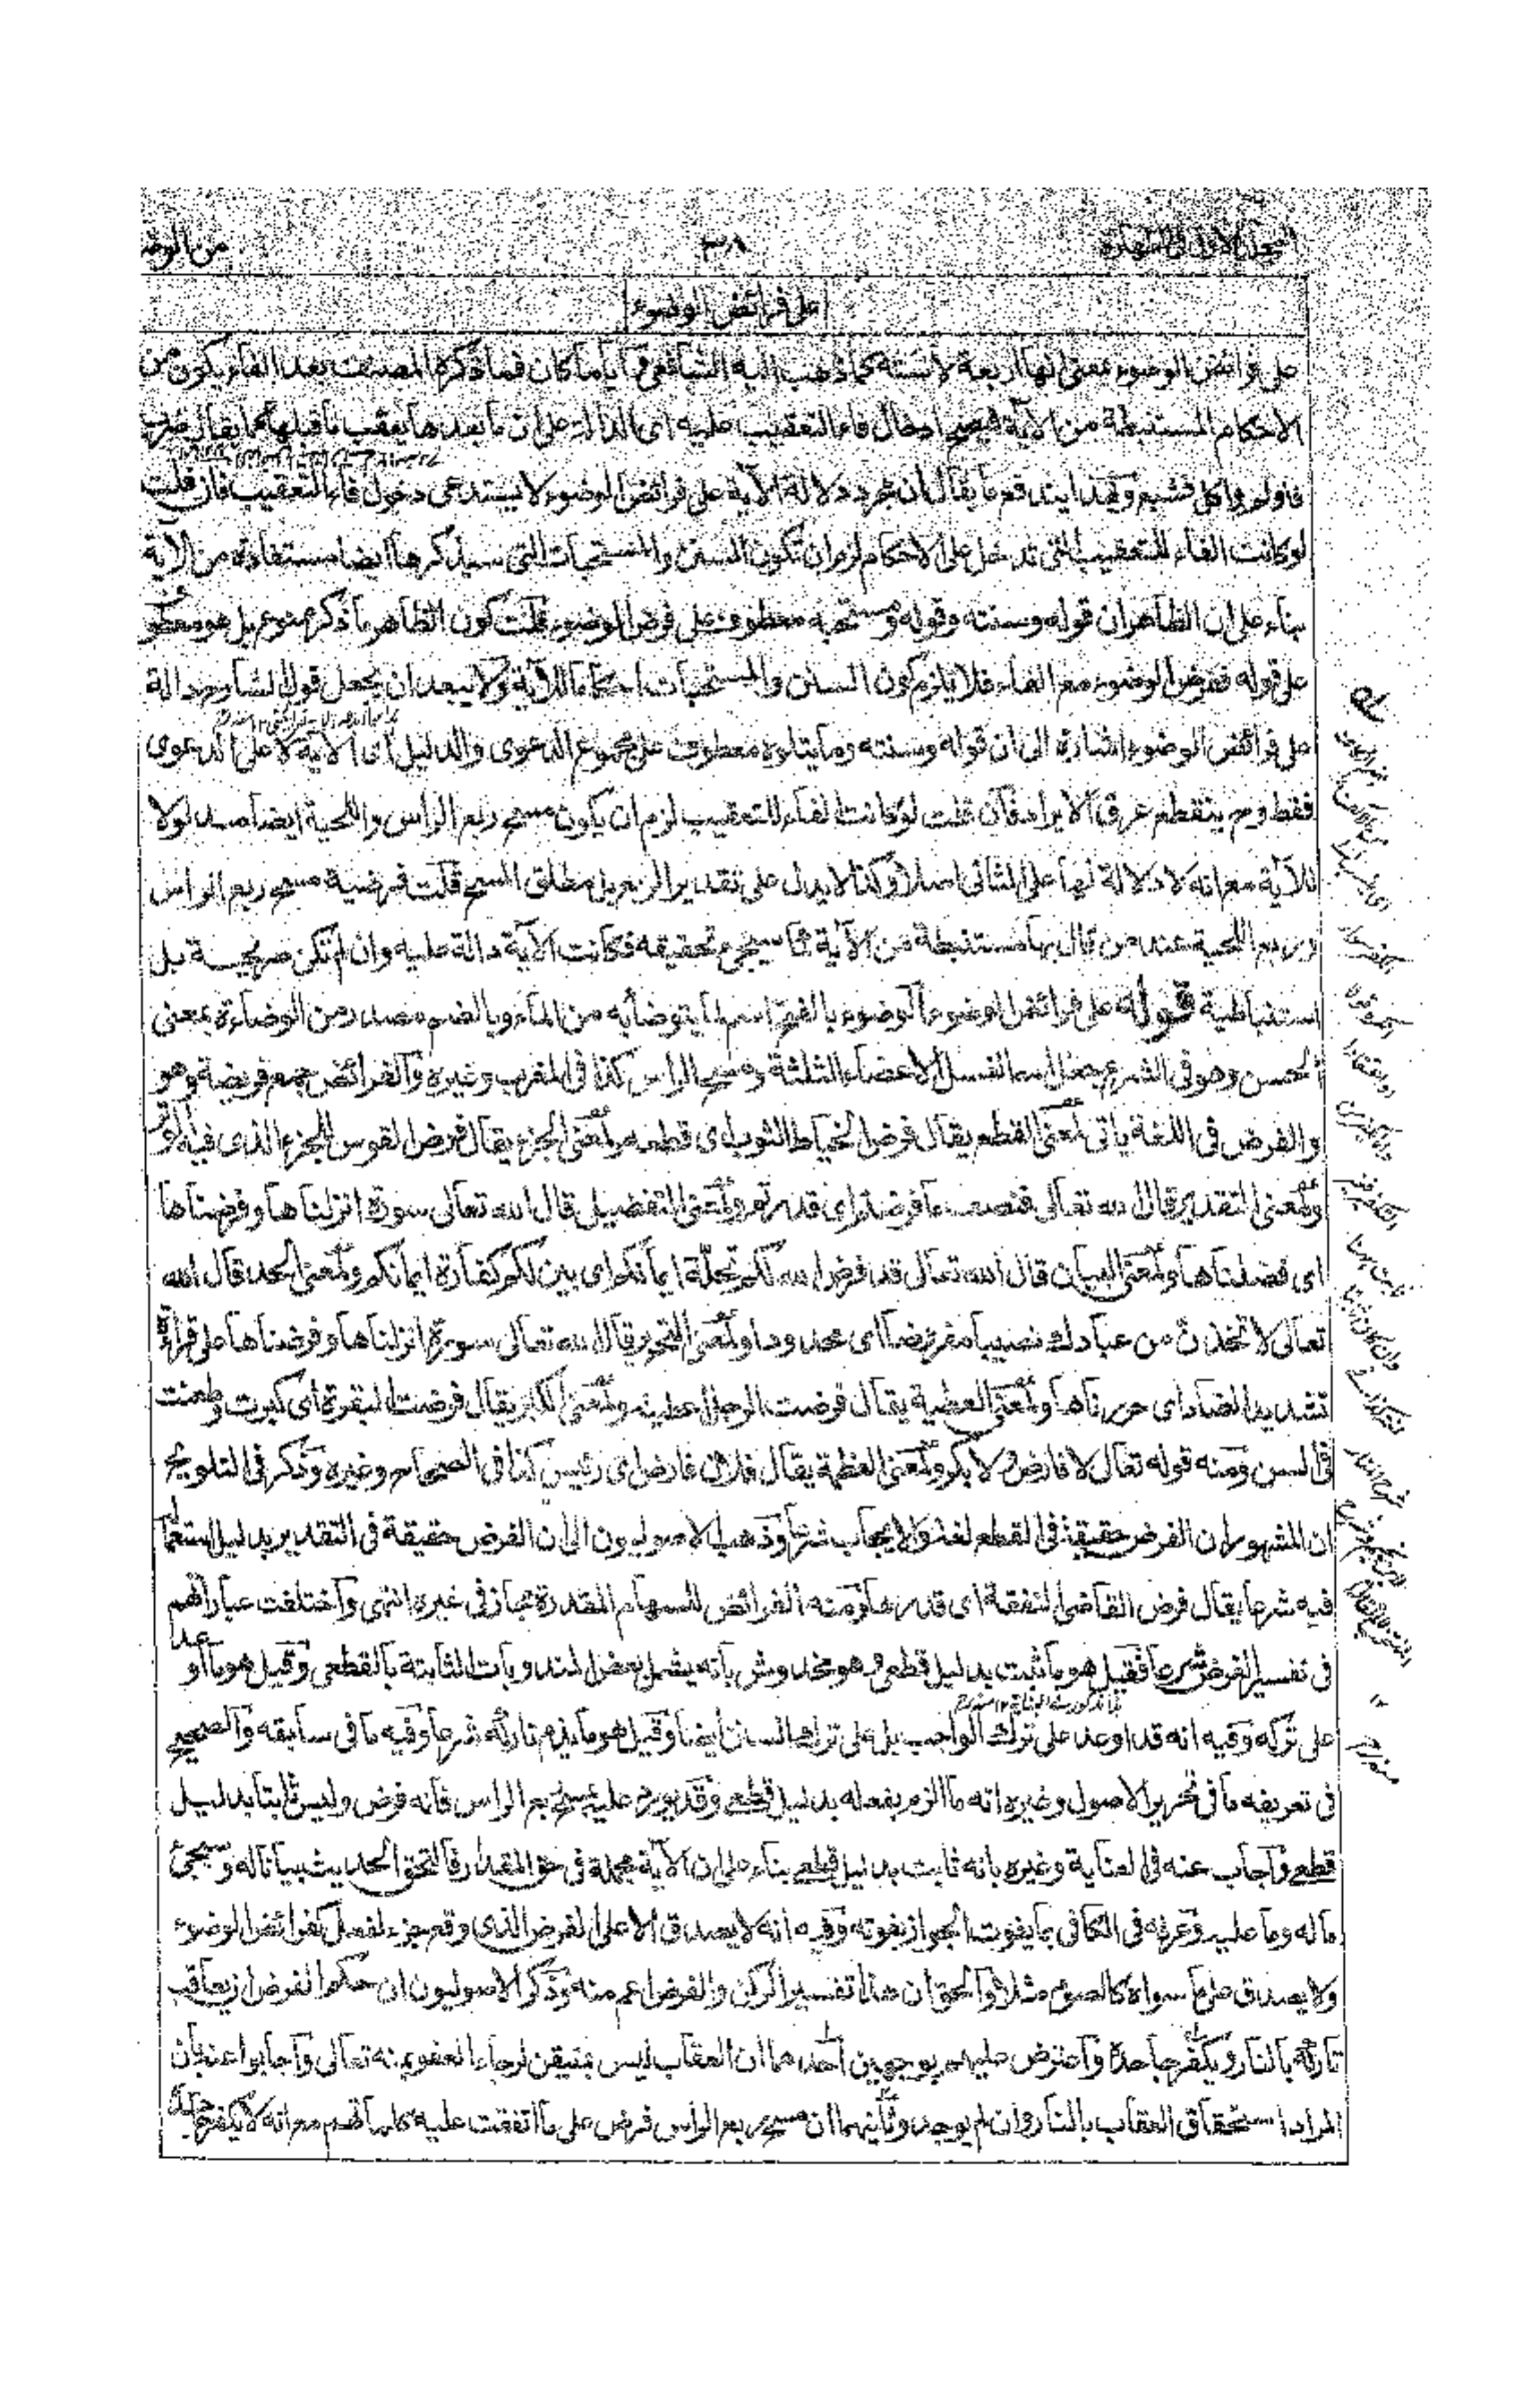 المجلد الاول فى الطهارة
٣٠٨
من الوضوء
على فرائض الوضوء
على فرائض الوضوء بمعنى انها اربعة لا ستة كما ذهب اليه الشافعى واياما كان فما ذكره المصنف بعد الفاء يكون من
الاحكام المستنبطة من الآية فيصح ادخال فاء التعقيب عليه اى الدالة على ان ما بعدها يعقب ما قبلها كما يقال ضرب
فاولم واكل فشبع وبهذا يندفع ما يقال ان مجرد دلالة الآية على فرائض الوضوء لا يستدعى دخول فاء التعقيب فان قلت
لو كانت الفاء للتعقيب التى تدخل على الاحكام لزم ان تكون السنن والمستحبات التى سيذكرها ايضا مستفادة من الآية
بناء على ان الظاهر ان قوله وسنته وقوله ومستحبه معطوف على فرض الوضوء قلت كون الظاهر ما ذكر ممنوع بل هو معطوف
على قوله ففرض الوضوء مع الفاء فلا يلزم كون السنن والمستحبات احكاما للآية ولا يبعد ان يجعل قول الشارح دالة
على فرائض الوضوء اشارة الى ان قوله وسنته وما يتلوه معطوف على مجموع الدعوى والدليل اى الآية لا على الدعوى
فقط وح ينقطع عرق الايراد فان قلت لو كانت الفاء للتعقيب لزم ان يكون مسح ربع الراس واللحية ايضا مدلولا
للآية مع انه لا دلالة لها على الثانى اصلا وكذا لا يدل على تقدير الربع بل مطلق المسح قلت فرضية مسح ربع الراس
وربع اللحية عند من قال بها مستنبطة من الآية كما سيجئ تحقيقه فكانت الآية دالة عليه وان لم تكن صريحة بل
استنباطية قوله على فرائض الوضوء الوضوء بالفتح اسم لما يتوضأ به من الماء وبالضم مصدر من الوضاءة بمعنى
الحسن وهو فى الشرع جعل اسما لغسل الاعضاء الثلثة ومسح الراس كذا فى المغرب وغيره والفرائض جمع فريضة وهو
والفرض فى اللغة ياتى بمعنى القطع يقال فرض الخياط الثوب اى قطعه وبمعنى الجزء يقال فرض القوس للجزء الذى فيه الوتر
وبمعنى التقدير قال الله تعالى فنصف ما فرضتم اى قدرتم وبمعنى التفضيل قال الله تعالى سورة انزلناها وفرضناها
اى فضلناها وبمعنى البيان قال الله تعالى قد فرض الله لكم تحلة ايمانكم اى بين لكم كفارة ايمانكم وبمعنى الحد قال الله
تعالى لاتخذن من عبادك نصيبا مفروضا اى محدودا وبمعنى التحرير قال الله تعالى سورة انزلناها وفرضناها على قراءة
تشديد الضاد اى حررناها وبمعنى العطية يقال فرضت الرجل عطيته وبمعنى الكبر يقال فرضت البقرة اى كبرت وطعنت
فى السن ومنه قوله تعالى لا فارض ولا بكر وبمعنى العظمة يقال فلان فارض اى رئيس كذا فى الصحاح وغيره وذكر فى التلويح
ان المشهور ان الفرض حقيقة فى القطع لغة والايجاب شرعا وذهب الاصوليون الى ان الفرض حقيقة فى التقدير بدليل استعماله
فيه شرعا يقال فرض القاضى النفقة اى قدرها ومنه الفرائض للسهام المقدرة مجاز فى غيره انتهى واختلفت عباراتهم
فى تفسير الفرض شرعا فقيل هو ما ثبت بدليل قطعى وهو مخدوش بانه يشمل بعض المندوبات الثابتة بالقطعى وقيل هو ما اوعد
على تركه وفيه انه قد اوعد على ترك الواجب بل على ترك السنن ايضا وقيل هو ما يذم تاركه شرعا وفيه ما فى سابقه والصحيح
فى تعريفه ما فى تحرير الاصول وغيره انه ما الزم بفعله بدليل قطعى وقد يورد عليه مسح ربع الراس فانه فرض وليس ثابتا بدليل
قطعى واجاب عنه فى العناية وغيره بانه ثابت بدليل قطعى بناء على ان الآية مجملة فى حق المقدار فالتحق الحديث بيانا له وسيجئ
ما له وما عليه وعرفه فى الكافى بما يفوت الجواز بفوته وفيه انه لا يصدق الا على الفرض الذى وقع جزء لفعل كفرائض الوضوء
ولا يصدق على ما سواه كالصوم مثلا والحق ان هذا تفسير الركن والفرض اعم منه وذكر الاصوليون ان حكم الفرض ان يعاقب
تاركه بالنار ويكفر جاحده واعترض عليهم بوجهين احدهما ان العقاب ليس بمتيقن لرجاء العفو منه تعالى واجابوا عنه بان
المراد استحقاق العقاب بالنار وان لم يوجد وثانيهما ان مسح ربع الراس فرض على ما اتفقت عليه كلماتهم مع انه لا يكفر جاحده